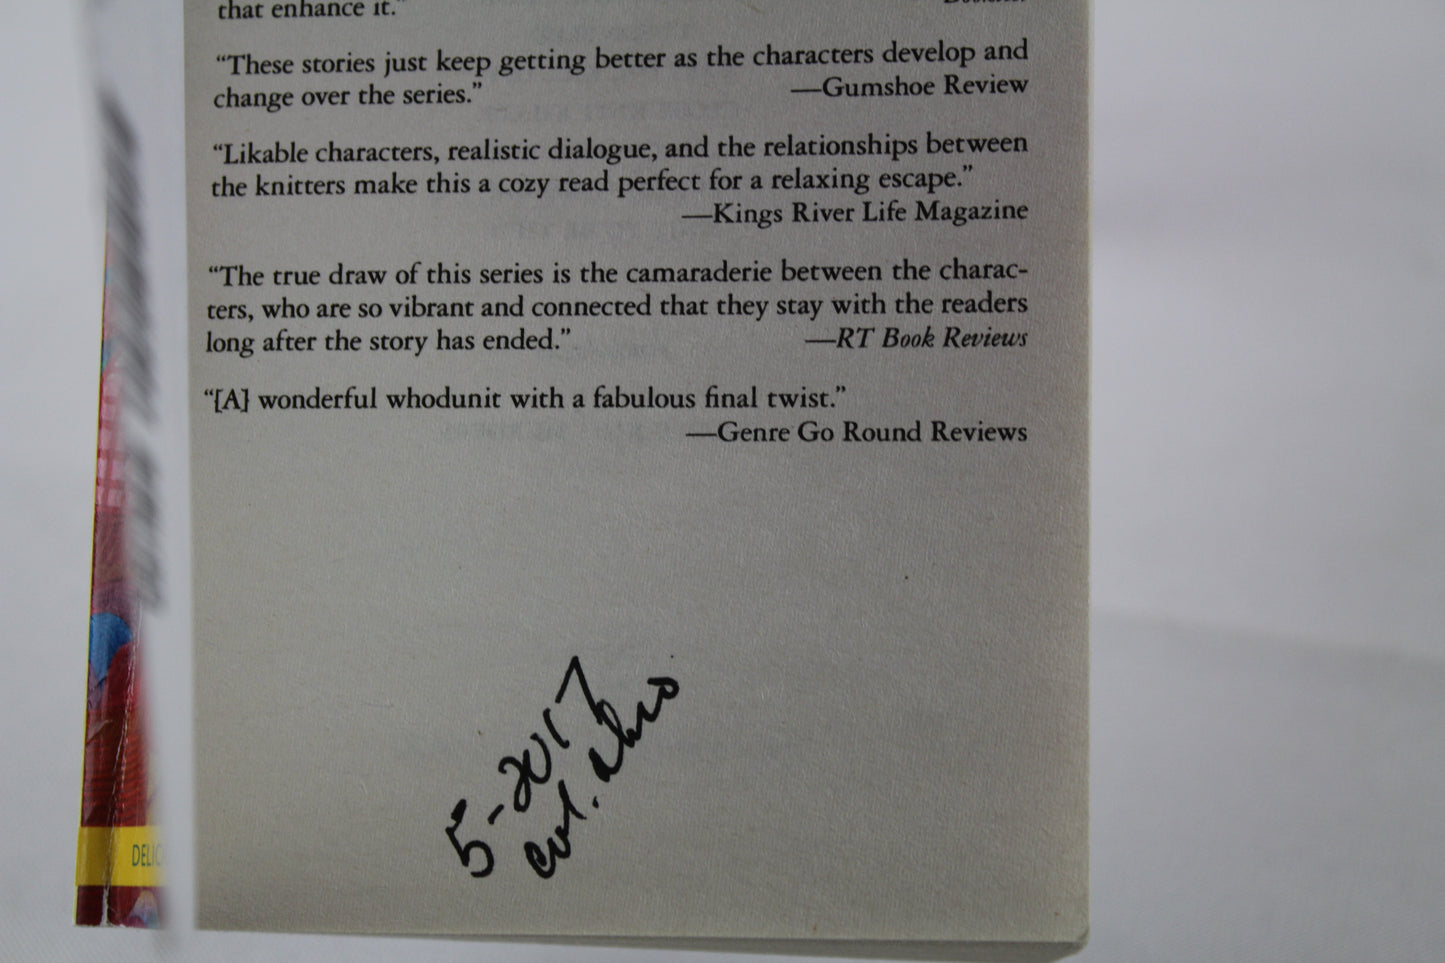 that enhance it.”
“These stories just keep getting better as the characters develop and
change over the series.” —Gumshoe Review
“Likable characters, realistic dialogue, and the relationships between
the knitters make this a cozy read perfect for a relaxing escape.”
—Kings River Life Magazine
“The true draw of this series is the camaraderie between the charac-
ters, who are so vibrant and connected that they stay with the readers
long after the story has ended.” —RT Book Reviews
“[A] wonderful whodunit with a fabulous final twist.”
—Genre Go Round Reviews
5-2017
DELIC